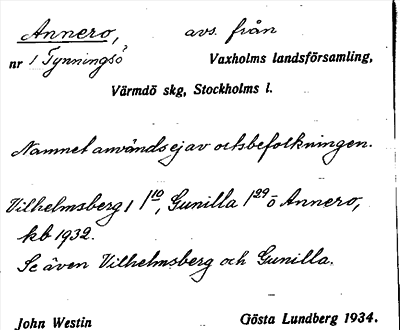 Annero, avs. från
nr 1 Tynningsö Vaxholms landsförsamling,
Värmdö skg, Stockholms l.
Namnet användes ej av ortsbefolkningen.
Vilhelmsberg 1 1/10, Gunilla 1 29 ö Annero,
kb 1932.
Se även Vilhelmsberg och Gunilla.
John Westin Gösta Lundberg 1934.